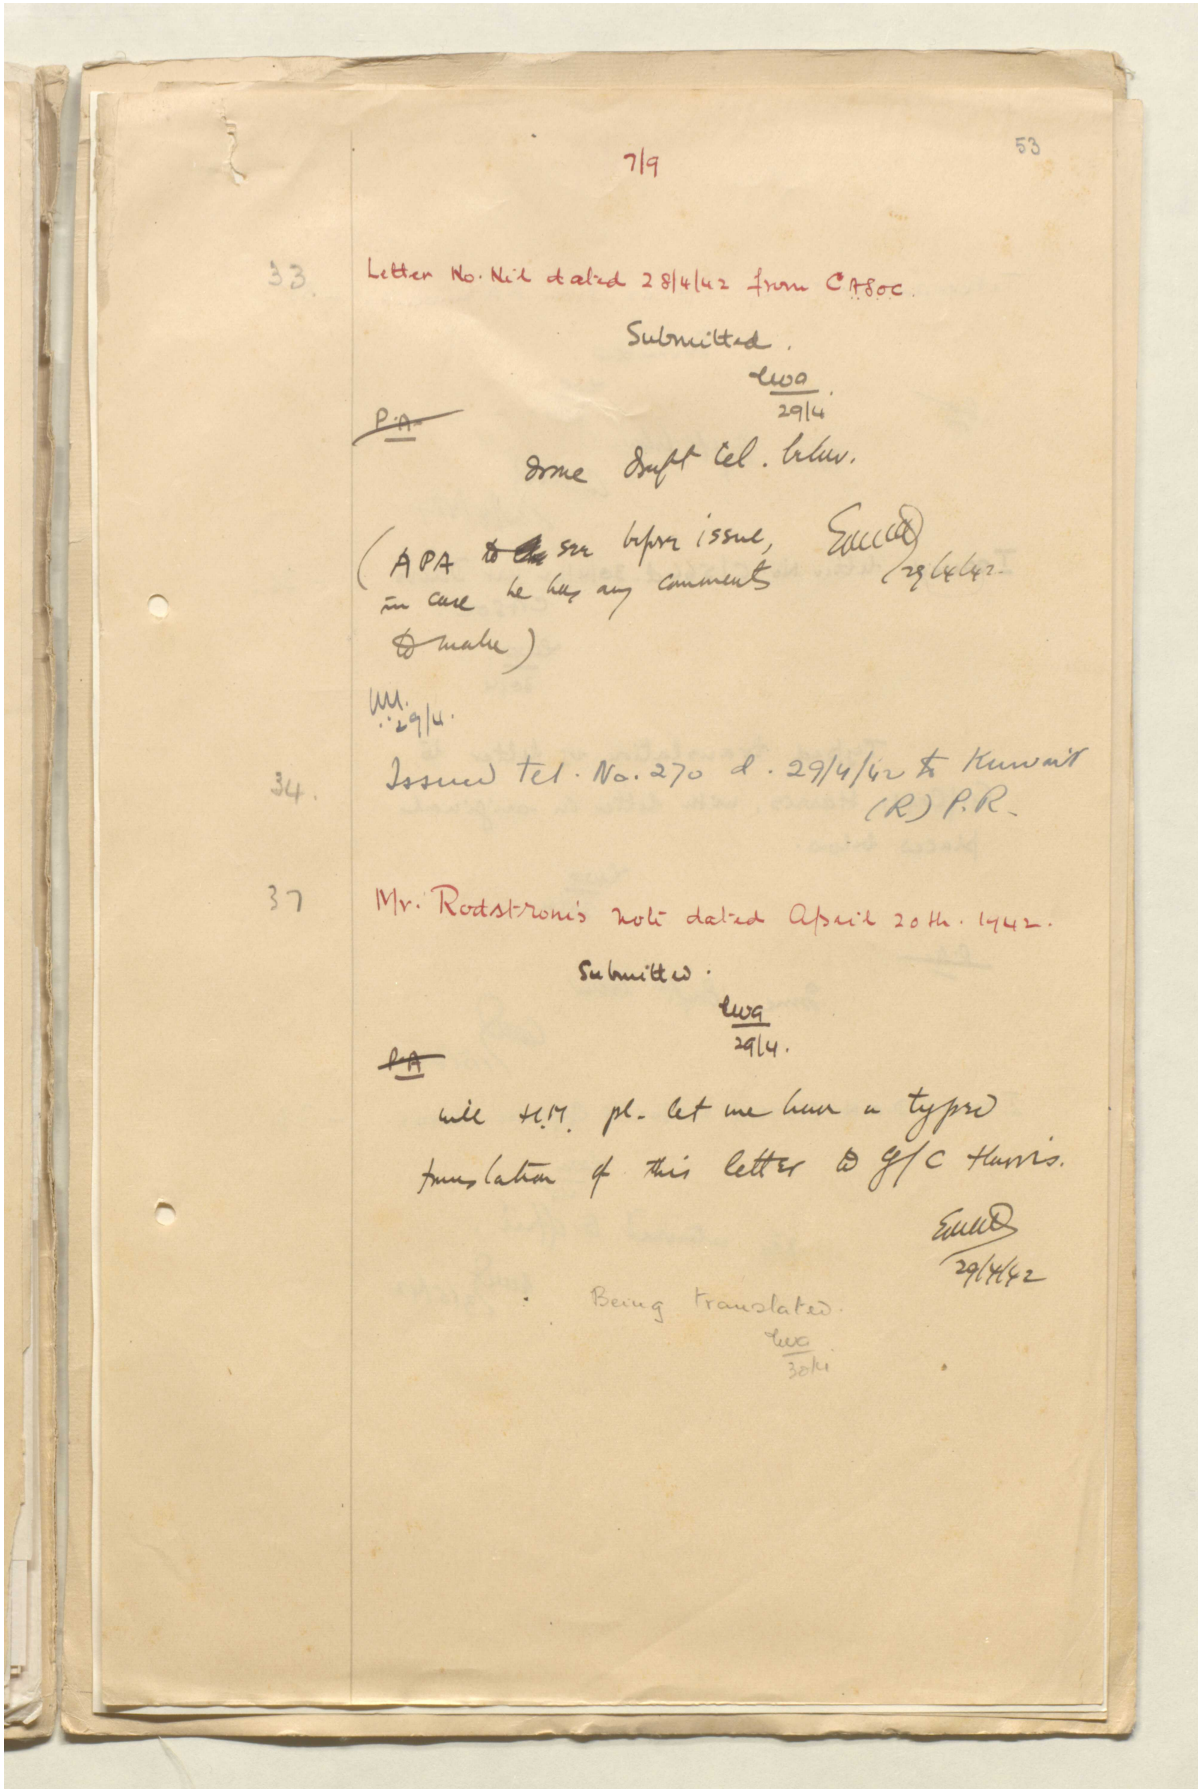 53
7/9
33. Letter No. Nil dated 28/4/42 from CASOC.
Submitted.
29/4.
P.A.
Issue draft tel. below.
(APA to see before issue,
in case he has any comments
to make)
29/4/42.
29/4.
34. Issued tel. No. 270 d. 29/4/42 to Kuwait
(R) P.R.
37 Mr. Rodstrom's note dated April 20th. 1942.
Submitted.
29/4.
P.A
will H.M. pl. let me have a typed
translation of this letter to G/C Harris.
29/4/42
Being translated.
30/4